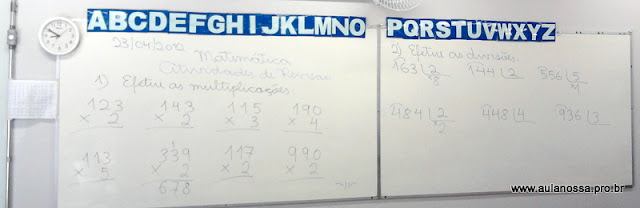 ABCDEFGHIJKLMNO PQRSTUVWXYZ
23/04/2012
Matemática
Atividades de Revisão
1) Efetue as multiplicações:
123 143 115 190
× 2 × 2 × 3 × 4
113 339 117 990
× 5 × 2 × 2 × 2
678
2) Efetue as divisões:
163 2 144 2 556 5
8
484 2 448 4 936 3
2
www.aulanossa.pro.br